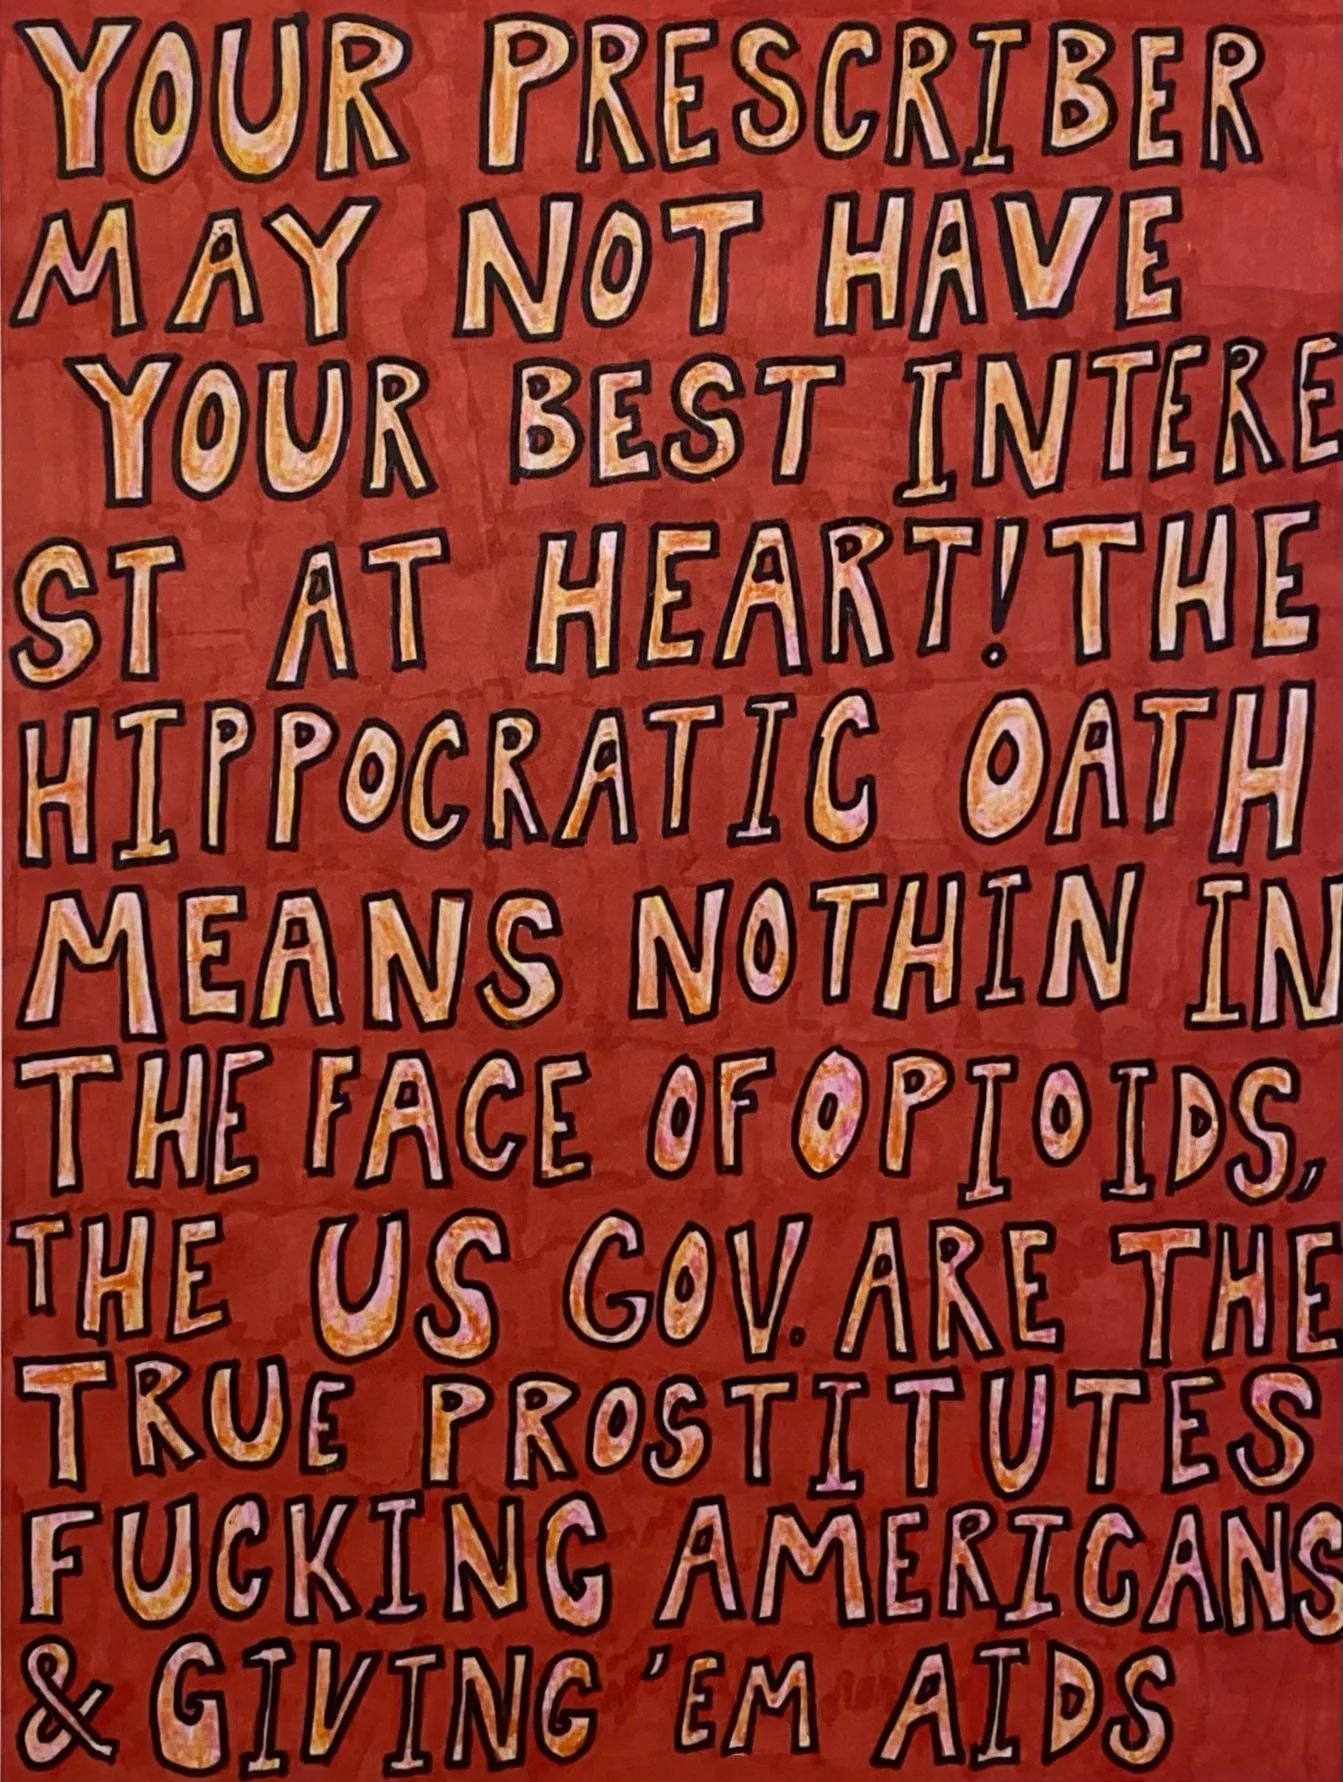 YOUR PRESCRIBER
MAY NOT HAVE
YOUR BEST INTERE
ST AT HEART! THE
HIPPOCRATIC OATH
MEANS NOTHIN IN
THE FACE OF OPIOIDS,
THE US GOV. ARE THE
TRUE PROSTITUTES
FUCKING AMERICANS
& GIVING 'EM AIDS